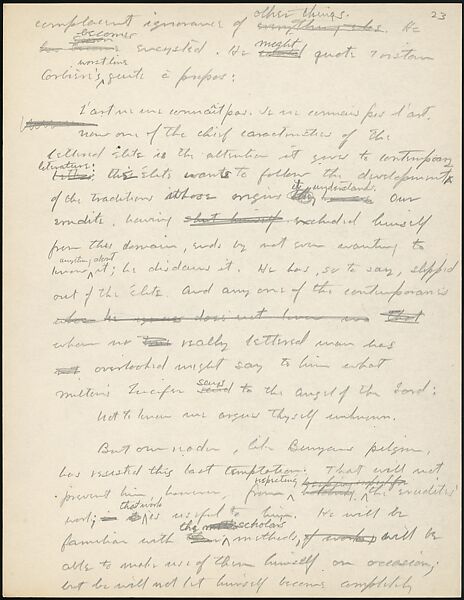 23
complacent ignorance of other things. He
becomes encysted. He might quote Tristan
Corbière's worst line quite à propos:
L'art ne me connaît pas. Je ne connais pas l'art.
Now one of the chief caracteristics of the
lettered élite is the attention it gives to contemporary
literature; the élite wants to follow the development
of the traditions whose origins it understands. Our
erudite, having excluded himself
from this domain, ends by not even wanting to
know anything about it; he disdains it. He has, so to say, slipped
out of the élite. And any one of the contemporaries
whom no really lettered man has
overlooked might say to him what
Milton's Lucifer says to the Angel of the Lord:
Not to know me argues thyself unknown.
But our reader, like Bunyan's pilgrim,
has resisted this last temptation. That will not
prevent him, however, from respecting the erudites'
work; that work is useful to him. He will be
familiar with the scholars' methods, will be
able to make use of them himself on occasion;
but he will not let himself become completely